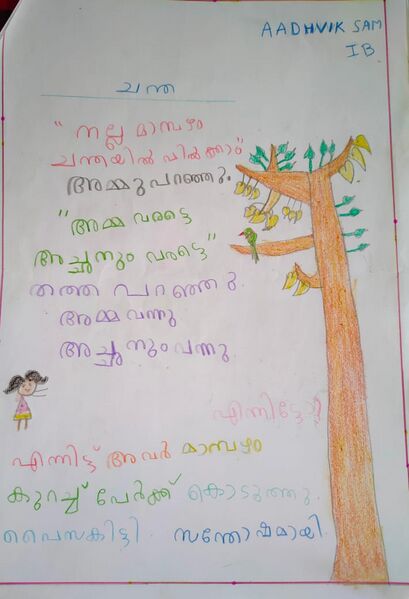 AADHVIK SAM
I B
ചന്ത
"നല്ല മാമ്പഴം
ചന്തയിൽ വിൽക്കാം"
അമ്മു പറഞ്ഞു.
"അമ്മ വരട്ടെ
അച്ഛനും വരട്ടെ"
തത്ത പറഞ്ഞു.
അമ്മ വന്നു
അച്ഛനും വന്നു.
എന്നിട്ടോ?
എന്നിട്ട് അവർ മാമ്പഴം
കുറച്ച് പേർക്ക് കൊടുത്തു.
പൈസകിട്ടി. സന്തോഷമായി.